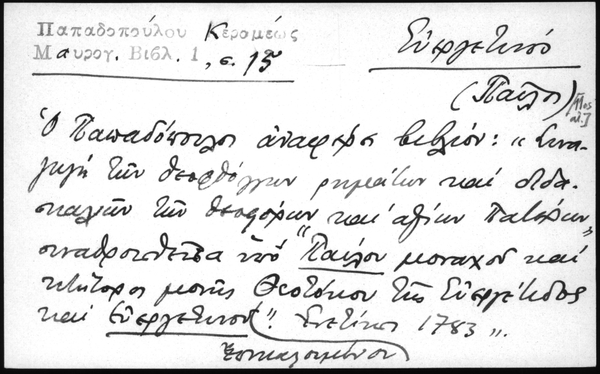 Παπαδοπούλου Κεραμέως
Μαυρογ. Βιβλ. 1, σ. 15
Εὐεργετινό
(Παῦλος) [11ος αἰ.]
Ὁ Παπαδόπουλος ἀναφέρει βιβλίον: "Συνα-
γωγή τῶν θεοφθόγγων ρημάτων καί διδα-
σκαλιῶν τῶν θεοφόρων καί ἁγίων Πατέρων"
συναθροισθεῖσα ὑπό "Παύλου μοναχοῦ καί
κτήτορος μονῆς Θεοτόκου τῆς Εὐεργέτιδος
καί Εὐεργετινοῦ". Ἐνετίησι 1783".
ἐπικαλουμένου